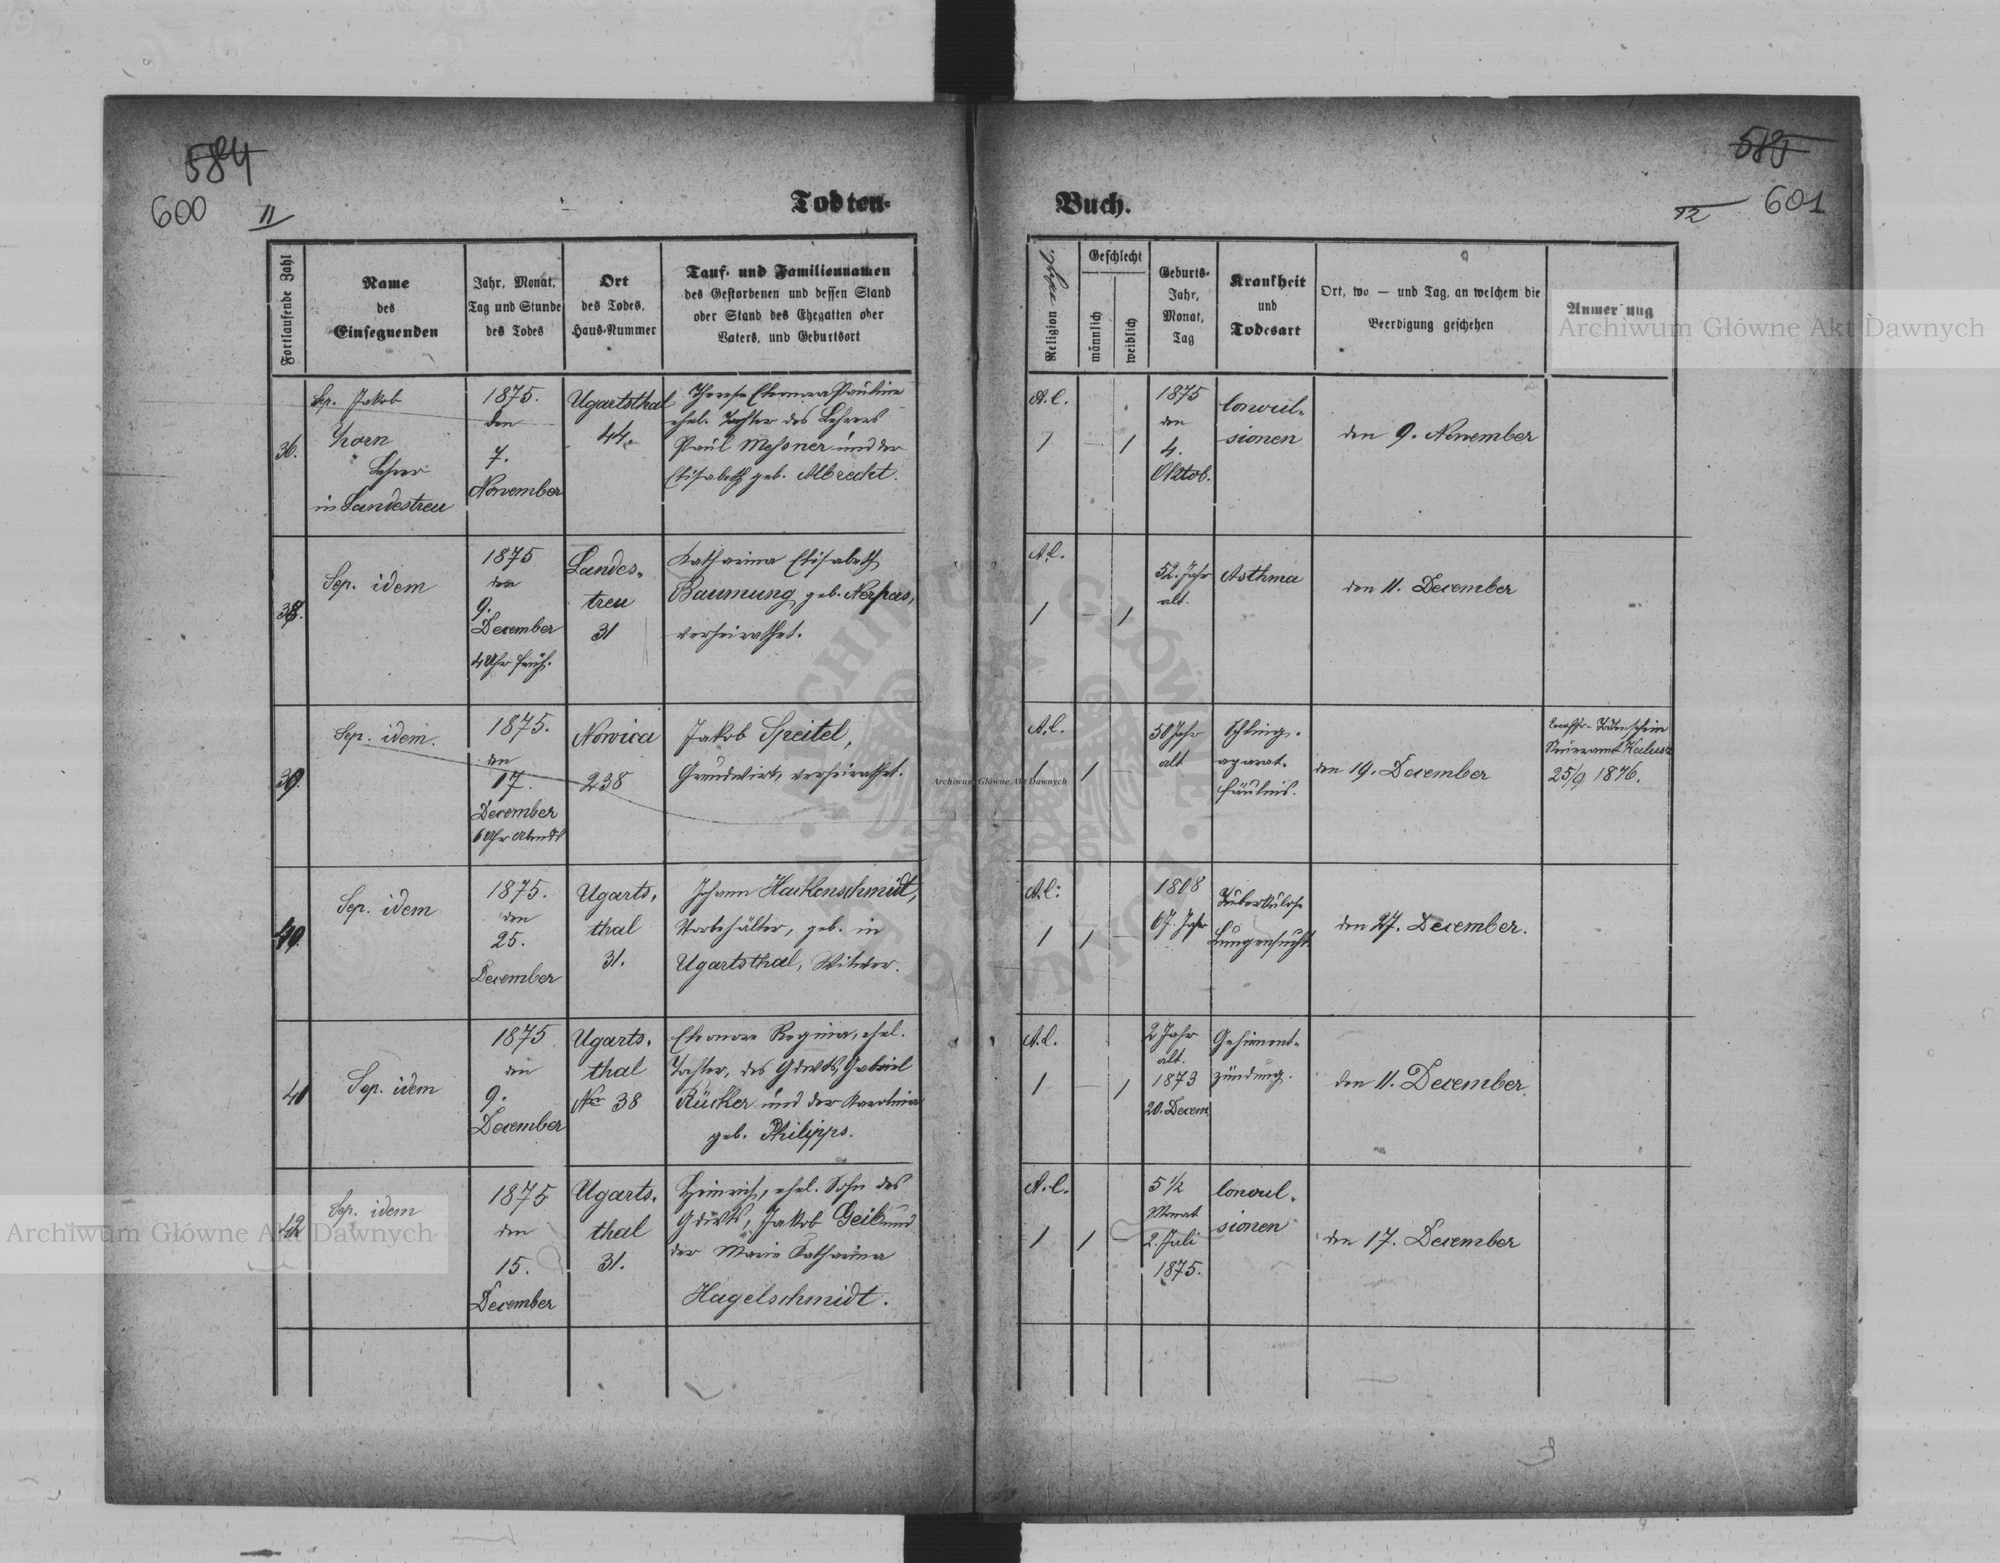 584
600
11
Todten-
Fortlaufende Zahl
Name
des
Einsegnenden
Jahr, Monat,
Tag und Stunde
des Todes
Ort
des Todes,
Haus-Nummer
Tauf- und Familiennamen
des Gestorbenen und dessen Stand
oder Stand des Ehegatten oder
Vaters, und Geburtsort
36.
Sep. Jakob
Horn
Lehrer
in Landestreu
1875.
den
7.
November
Ugartsthal
44.
Therese Eleonora Pauline
ehel. Tochter des Lehrers
Paul Meßner und der
Elisabeth geb. Albrecht.
38.
Sep. idem
1875
den
9.
December
4 Uhr früh.
Landes-
treu
31
Katharina Elisabeth
Baumung geb.
verheirathet.
39.
Sep. idem.
1875.
den
17.
December
6 Uhr Abends
Nowica
238
Jakob Speitel,
Grundwirth, verheirathet.
40.
Sep. idem
1875.
den
25.
December
Ugarts-
thal
31.
Johann Hackenschmidt,
Vorbehälter, geb. in
Ugartsthal, Witwer.
41
Sep. idem
1875
den
9.
December
Ugarts-
thal
Nro 38
Eleonore Regina, ehel.
Tochter, des Gdwts, Gabriel
Rücker und der Karolina
geb. Philipps.
42
Sep. idem
1875
den
15.
December
Ugarts-
thal
31.
Heinrich, ehel. Sohn des
Gdwts, Jakob Geib und
der Marie Katharina
Hagelschmidt.
585
601
12
Buch.
Religion
Geschlecht
männlich
weiblich
Geburts-
Jahr,
Monat,
Tag
Krankheit
und
Todesart
Ort, wo — und Tag, an welchem die
Beerdigung geschehen
Anmer ung
A.C.
1 — 1
1875
den
4.
Oktob.
Convul-
sionen
den 9. November
A.C.
1 — 1
52. Jahr
alt.
Asthma
den 11. December
A.C.
1 1 —
50 Jahr
alt
Schling-
aparat-
fäulnis.
den 19. December
Todtenschein
Steueramt Kalusz
25/9 1876.
A.C.
1 1 —
1808
67. Jahr
Tuberkulose
Lungensucht
den 27. December.
A.C.
1 — 1
2 Jahr
alt.
1873
20. Decem.
Gehirnent-
zündung.
den 11. December
A.C.
1 1
5 1/2
Monat
2. Juli
1875.
Convul-
sionen
den 17. December
Archiwum Główne Akt Dawnych
Archiwum Główne Akt Dawnych
Archiwum Główne Akt Dawnych